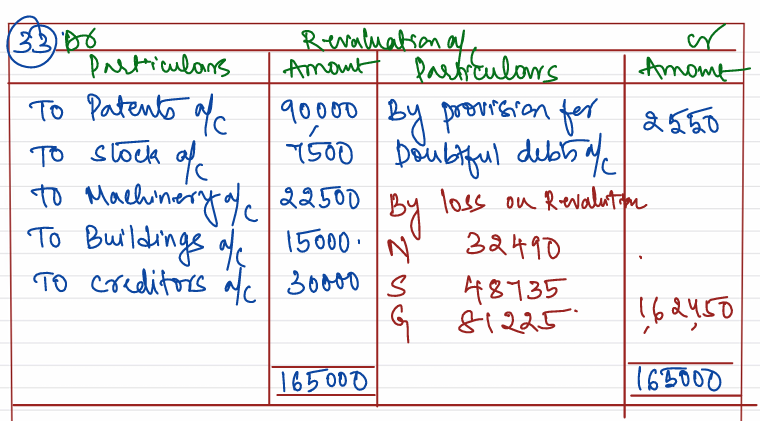 33 Dr Revaluation a/c cr
Particulars Amount Particulars Amount
To Patents a/c 90,000 By provision for 2550
To Stock a/c 7500 Doubtful debts a/c
To Machinery a/c 22500 By loss on Revalution
To Buildings a/c 15000. N 32490
To creditors a/c 30000 S 48735
G 81225 1,62,450
165000 165000